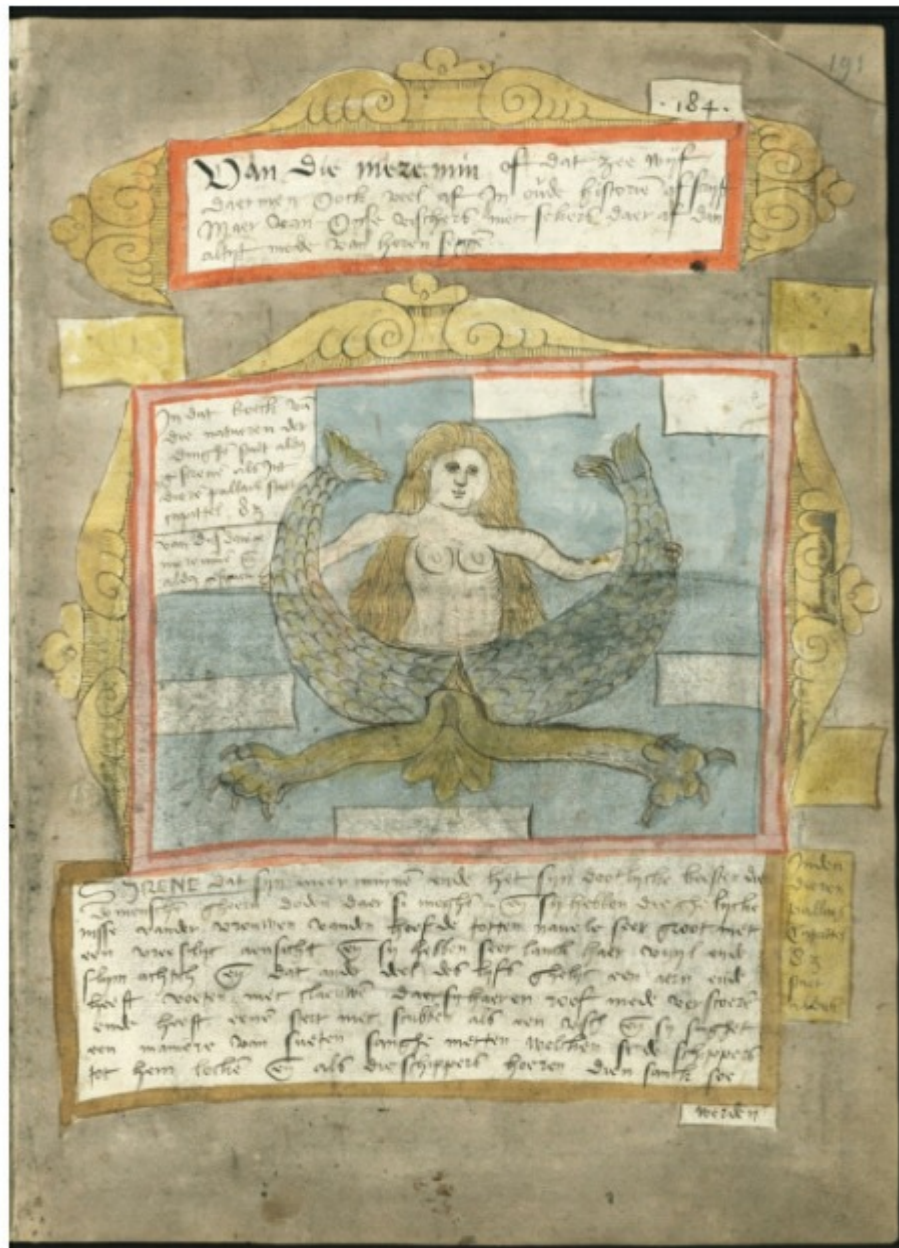 191
· 184 ·
Van die meremin of dat zee wijf
daermen Oock veel af In oude historie af
Maer van Onse visschers niet sekers daer af dan
altijt mede van horen seggen
In dat boeck van
die natueren der
dinghe staet aldus
gescreve als Int
diere pallaes staet
capittel 83
van
meremine
aldus
SIRENE dat sijn meer minne ende het sijn dootlycke beesten die
de mensche ghere dode daer si moghe En sij hebben die ghelijcke
nisse vander vrouwen vanden hoofde totten navele seer groot met
een vreeslijc aensicht En sij hebben seer lanck haer vuyl ende
slijm achtich En dat ander deel des lijfs ghelijc een aern ende
heeft voeten met clauwen daer sij haeren roof mede verstoere
ende heeft eenen stert met scubben als een visch En sij singhet
een maniere van sueten sanghe metten welcken se de schippers
tot hem locke En als die schippers hooren dien sanck soe
werden
Inden
dieren
pallaes
Capittel
83
staet